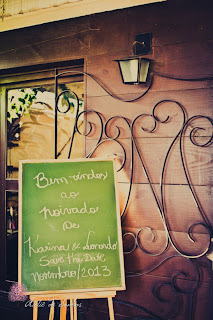 Bem vindos
ao
noivado
de
Karina & Leonardo
Save the Date
Novembro/2013